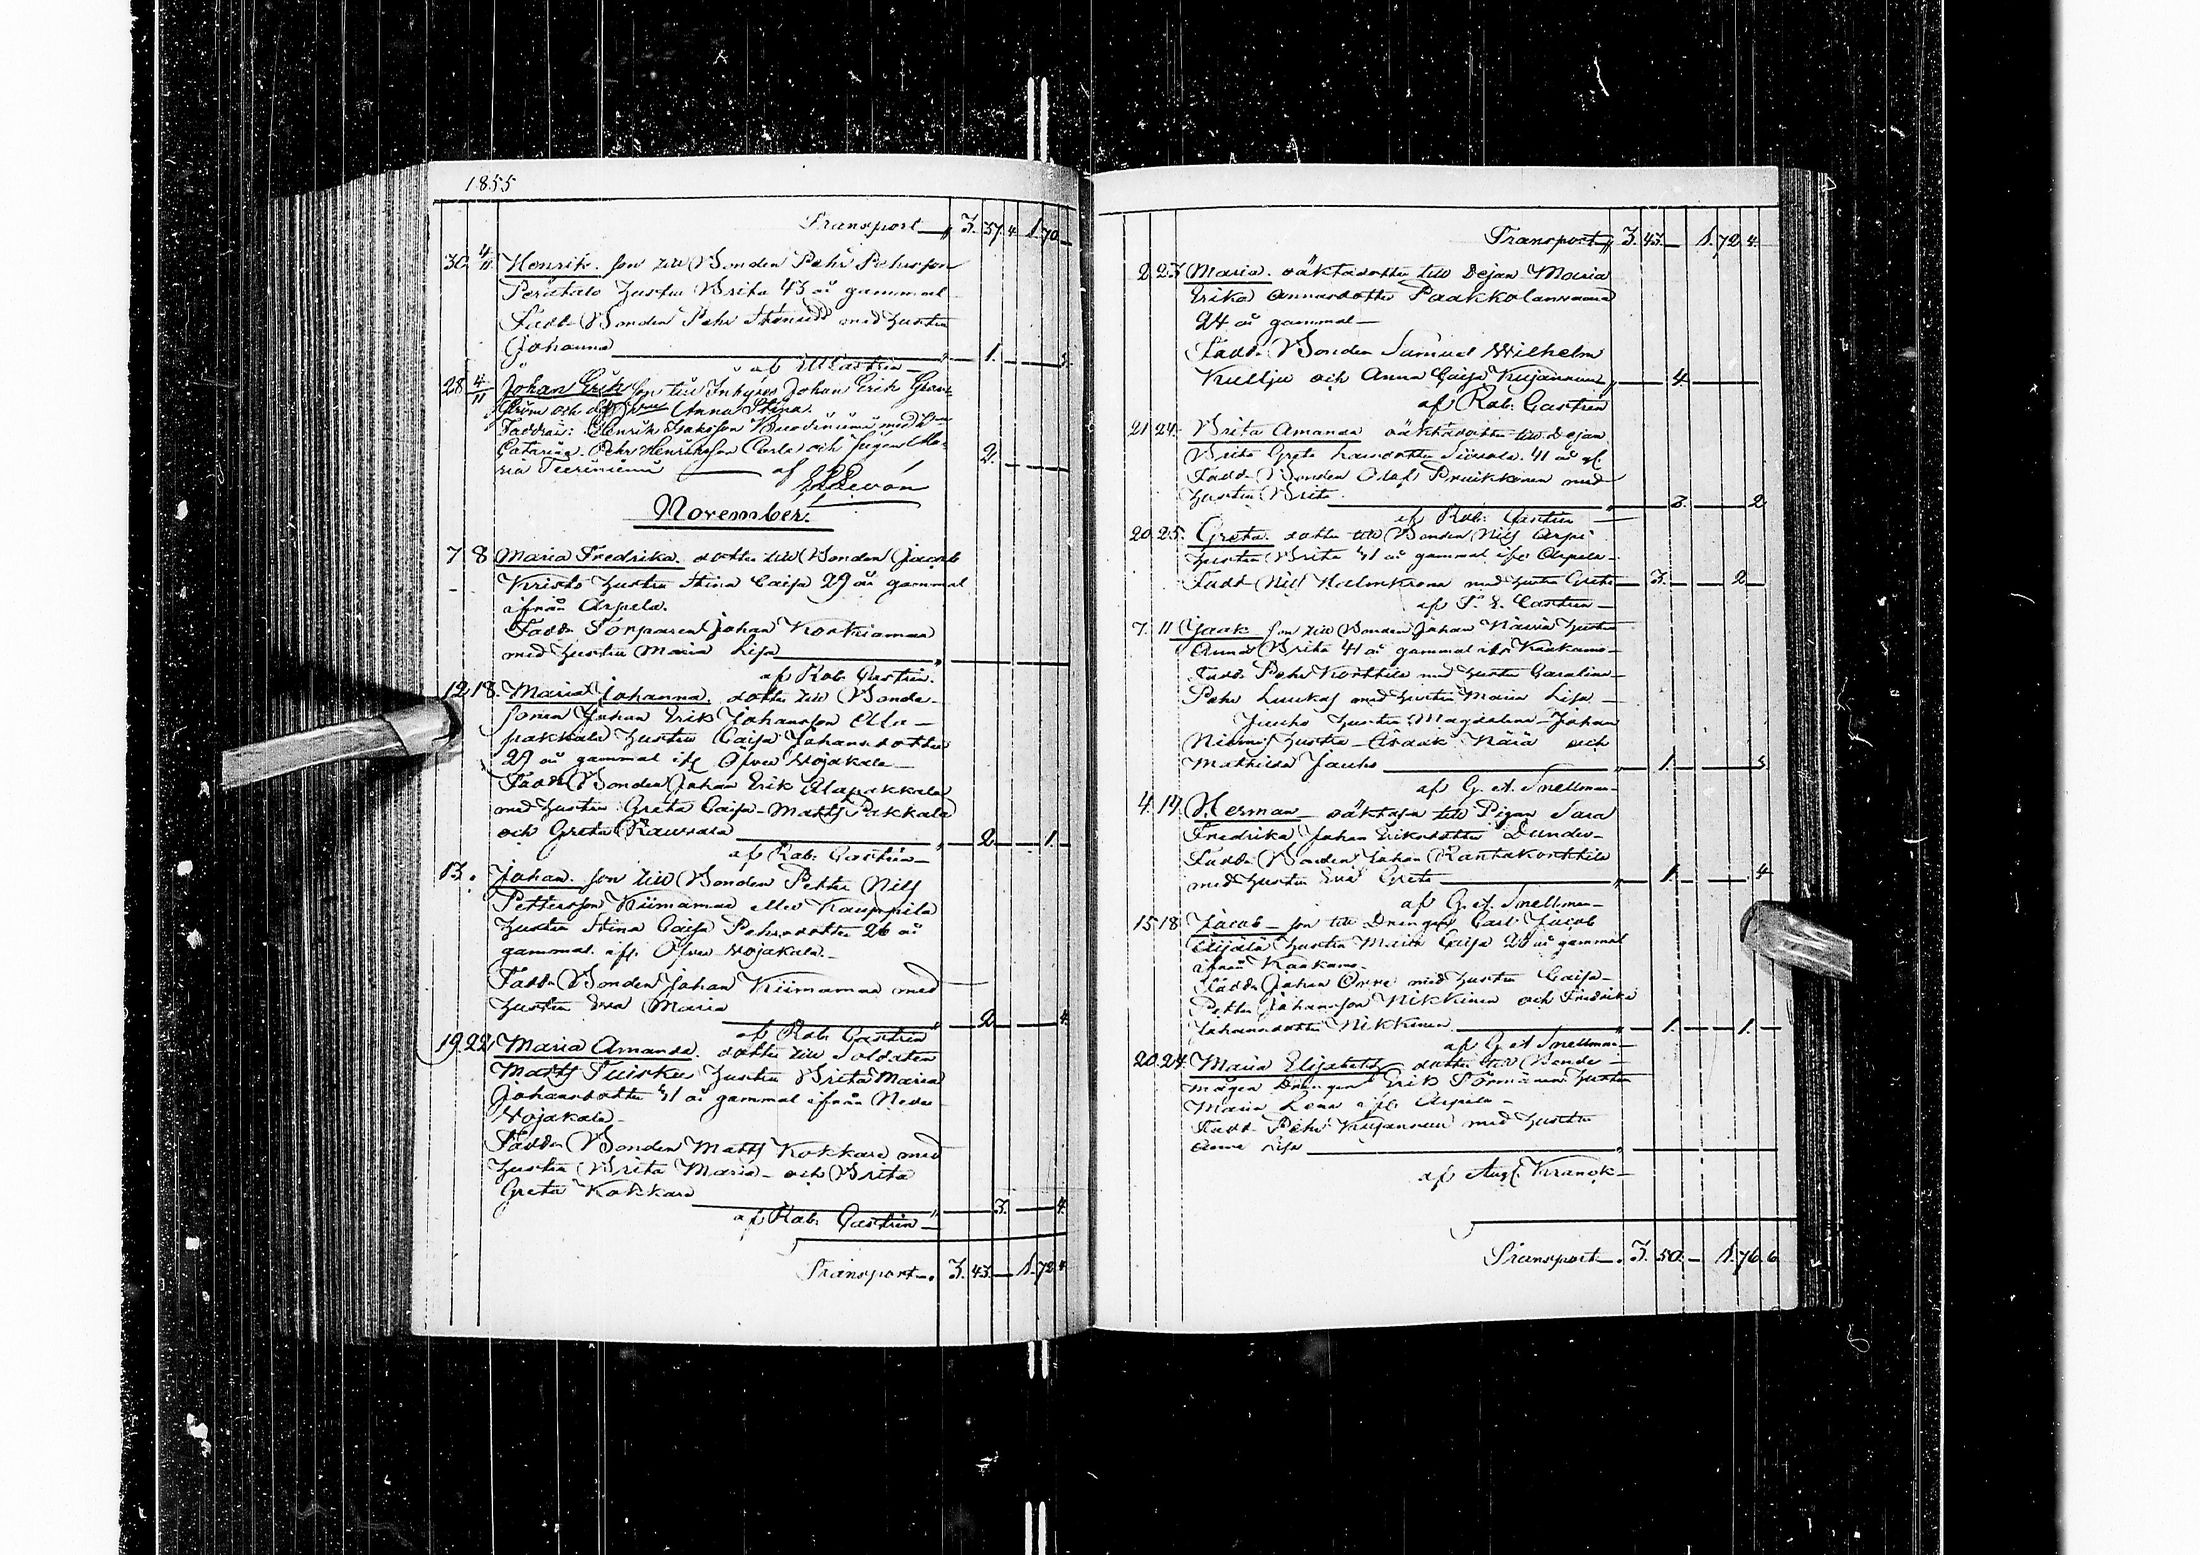 1855
Transport 3. 37. 4. 1. 70
30 4/11 Henrik. son till Bonden Pehr Pehrsson
Peratalo hustru Brita 43 år gammal
Fadd. Bonden Pehr med hustru
Johanna 1. 5.
af Castrén
28 4/11 Johan Erik son till Inhyses Johan Erik
ström och dess hustru Anna Stina.
Faddrar: Henrik Isaksson med h:u
Catarina. Pehr Henriksson och pigan Ma-
ria af 2.
November.
7 8 Maria Fredrika. dotter till Bonden Jacob
Kristo hustru Stina Caisa 29 år gammal
ifrån Arpela.
Fadd. Torparen Johan
med hustru Maria Lisa
af Rob. Castrén.
12 18. Maria Johanna. dotter till Bonde-
sonen Johan Erik Johansson Ala-
pakkala hustru Caisa Johansdotter
29 år gammal ifr. Öfver Wojakala
Fadd. Bonden Johan Erik Alapakkala
med hustru Greta Caisa - Matts Pakkala
och Greta 2. 1.
af Rob. Castrén
13. Johan. son till Bonden Petter Nils
Pettersson Kiimamaa eller Kauppila
hustru Stina Caisa Pehrsdotter 26 år
gammal. ifr. Öfver Wojakala.
Fadd. Bonden Johan Kiimamaa med
hustru Eva Maria 2. 4.
af Rob. Castrén
19. 22. Maria Amanda. dotter till Soldaten
Matts Tuisku hustru Brita Maria
Johansdotter 41 år gammal ifrån Neder
Wojakala
Fadd. Bonden Matts Kokkare med
hustru Brita Maria - och Brita
Greta Kokkare 3. 4.
af Rob. Castrén
Transport 3. 43. 1. 72. 4
Transport 3. 43. 1. 72. 4.
2 23 Maria. oäkta dotter till Dejan Maria
Erika Annasdotter Paakkolanvaara
24 år gammal
Fadd. Bonden Samuel Wilhelm
och Anna Caisa 4.
af Rob. Castrén
21 24. Brita Amanda oäkta dotter till Dejan
Brita Greta Larsdotter 41 år gl.
Fadd. Bonden Olof Pruikkonen med
hustru Brita 3. 2
af Rob. Castrén
20. 25. Greta. dotter till Bonden Nils Arpi
hustru Brita 41 år gammal ifr. Arpela
Fadd. Nils Holmkrona med hustru Greta 3. 2
af Castrén
7. 11 Isaak son till Bonden Johan hustru
Anna Brita 41 år gammal ifr. Kaakamo
Fadd. Pehr med hustru Carolina
Pehr Luukas med hustru Maria Lisa
hustru Magdalena - Johan
Niemis hustru - och
Mathilda 1. 5.
af G. A. Snellman
4. 14 Herman oäkta son till Pigan Sara
Fredrika Johan Eriksdotter
Fadd. Bonden Johan Rantakorttila
med hustru Eva Greta 1. 4
af G. A. Snellman
15 18 Jacob son till Drängen Carl Jacob
hustru Maria Caisa år gammal
ifrån Kaakamo
Fadd. Johan Orre med hustru Caisa
Petter Johansson Nikkinen och Fredrika
Johansdotter Nikkinen 1. 1.
af G. A. Snellman
20. 24. Maria Elisabeth dotter till Bonde-
mågen Drängen Erik Törmänen hustru
Maria Lena ifr. Arpela
Fadd. Pehr med hustru
Anna Lisa
af Aug. Kranck
Transport. 3. 50. 1. 76. 6